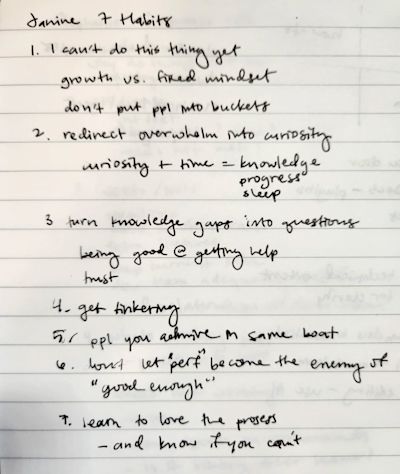 Janine 7 Habits
1. I can't do this thing yet
growth vs. fixed mindset
don't put ppl into buckets
2. redirect overwhelm into curiosity
curiosity + time = knowledge
progress
sleep
3 turn knowledge gaps into questions
being good @ getting help
trust
4. get tinkering
5. ppl you admire in same boat
6. don't let "perf" become the enemy of
"good enough"
7. learn to love the process
- and know if you can't